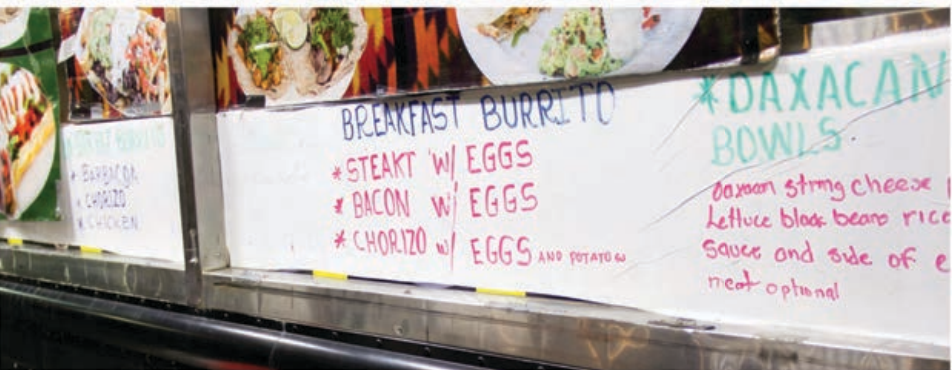 BURRITO
* BARBACOA
* CHORIZO
* CHICKEN
BREAKFAST BURRITO
* STEAKT W/ EGGS
* BACON W/ EGGS
* CHORIZO w/ EGGS AND POTATOS
* OAXACAN
BOWLS
Oaxacan string cheese
Lettuce black beans rice
Sauce and side of
meat optional